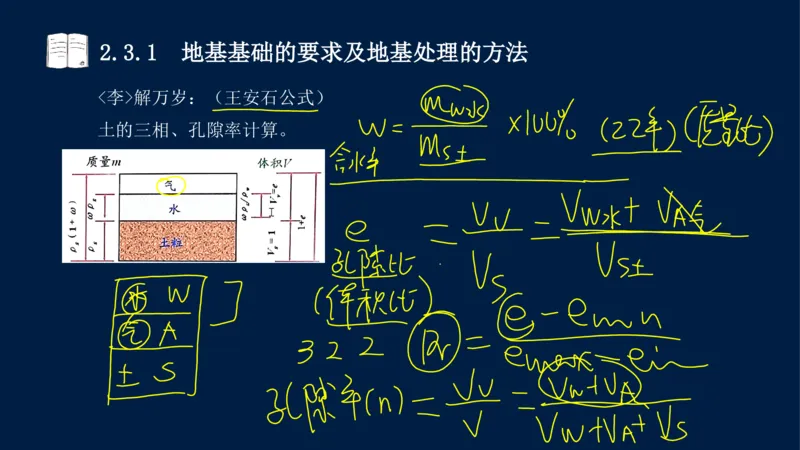 2.3.1 地基基础的要求及地基处理的方法
<李>解万岁：（王安石公式）
土的三相、孔隙率计算。
质量m 体积V
气
水
土粒
ρs(1+ω)
ωρs
ρs
ωρs/ρw
Vv=e
Vs=1
1+e
含水率 W = m_W水 / m_S土 ×100% (22年) (质量比)
e = Vv / Vs = V_W水 + V_A气 / V_S土
孔隙比
(体积比)
322
Dr = e-emin / emax-ein
孔隙率(n) = Vv / V = Vw+VA / Vw+VA+Vs
水 W
气 A
土 S